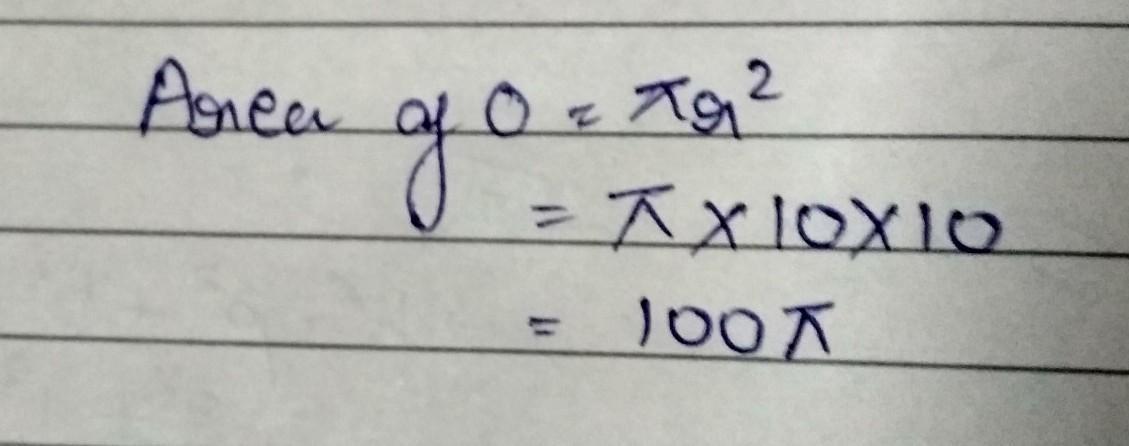 Area of O = πr²
= π × 10 × 10
= 100π